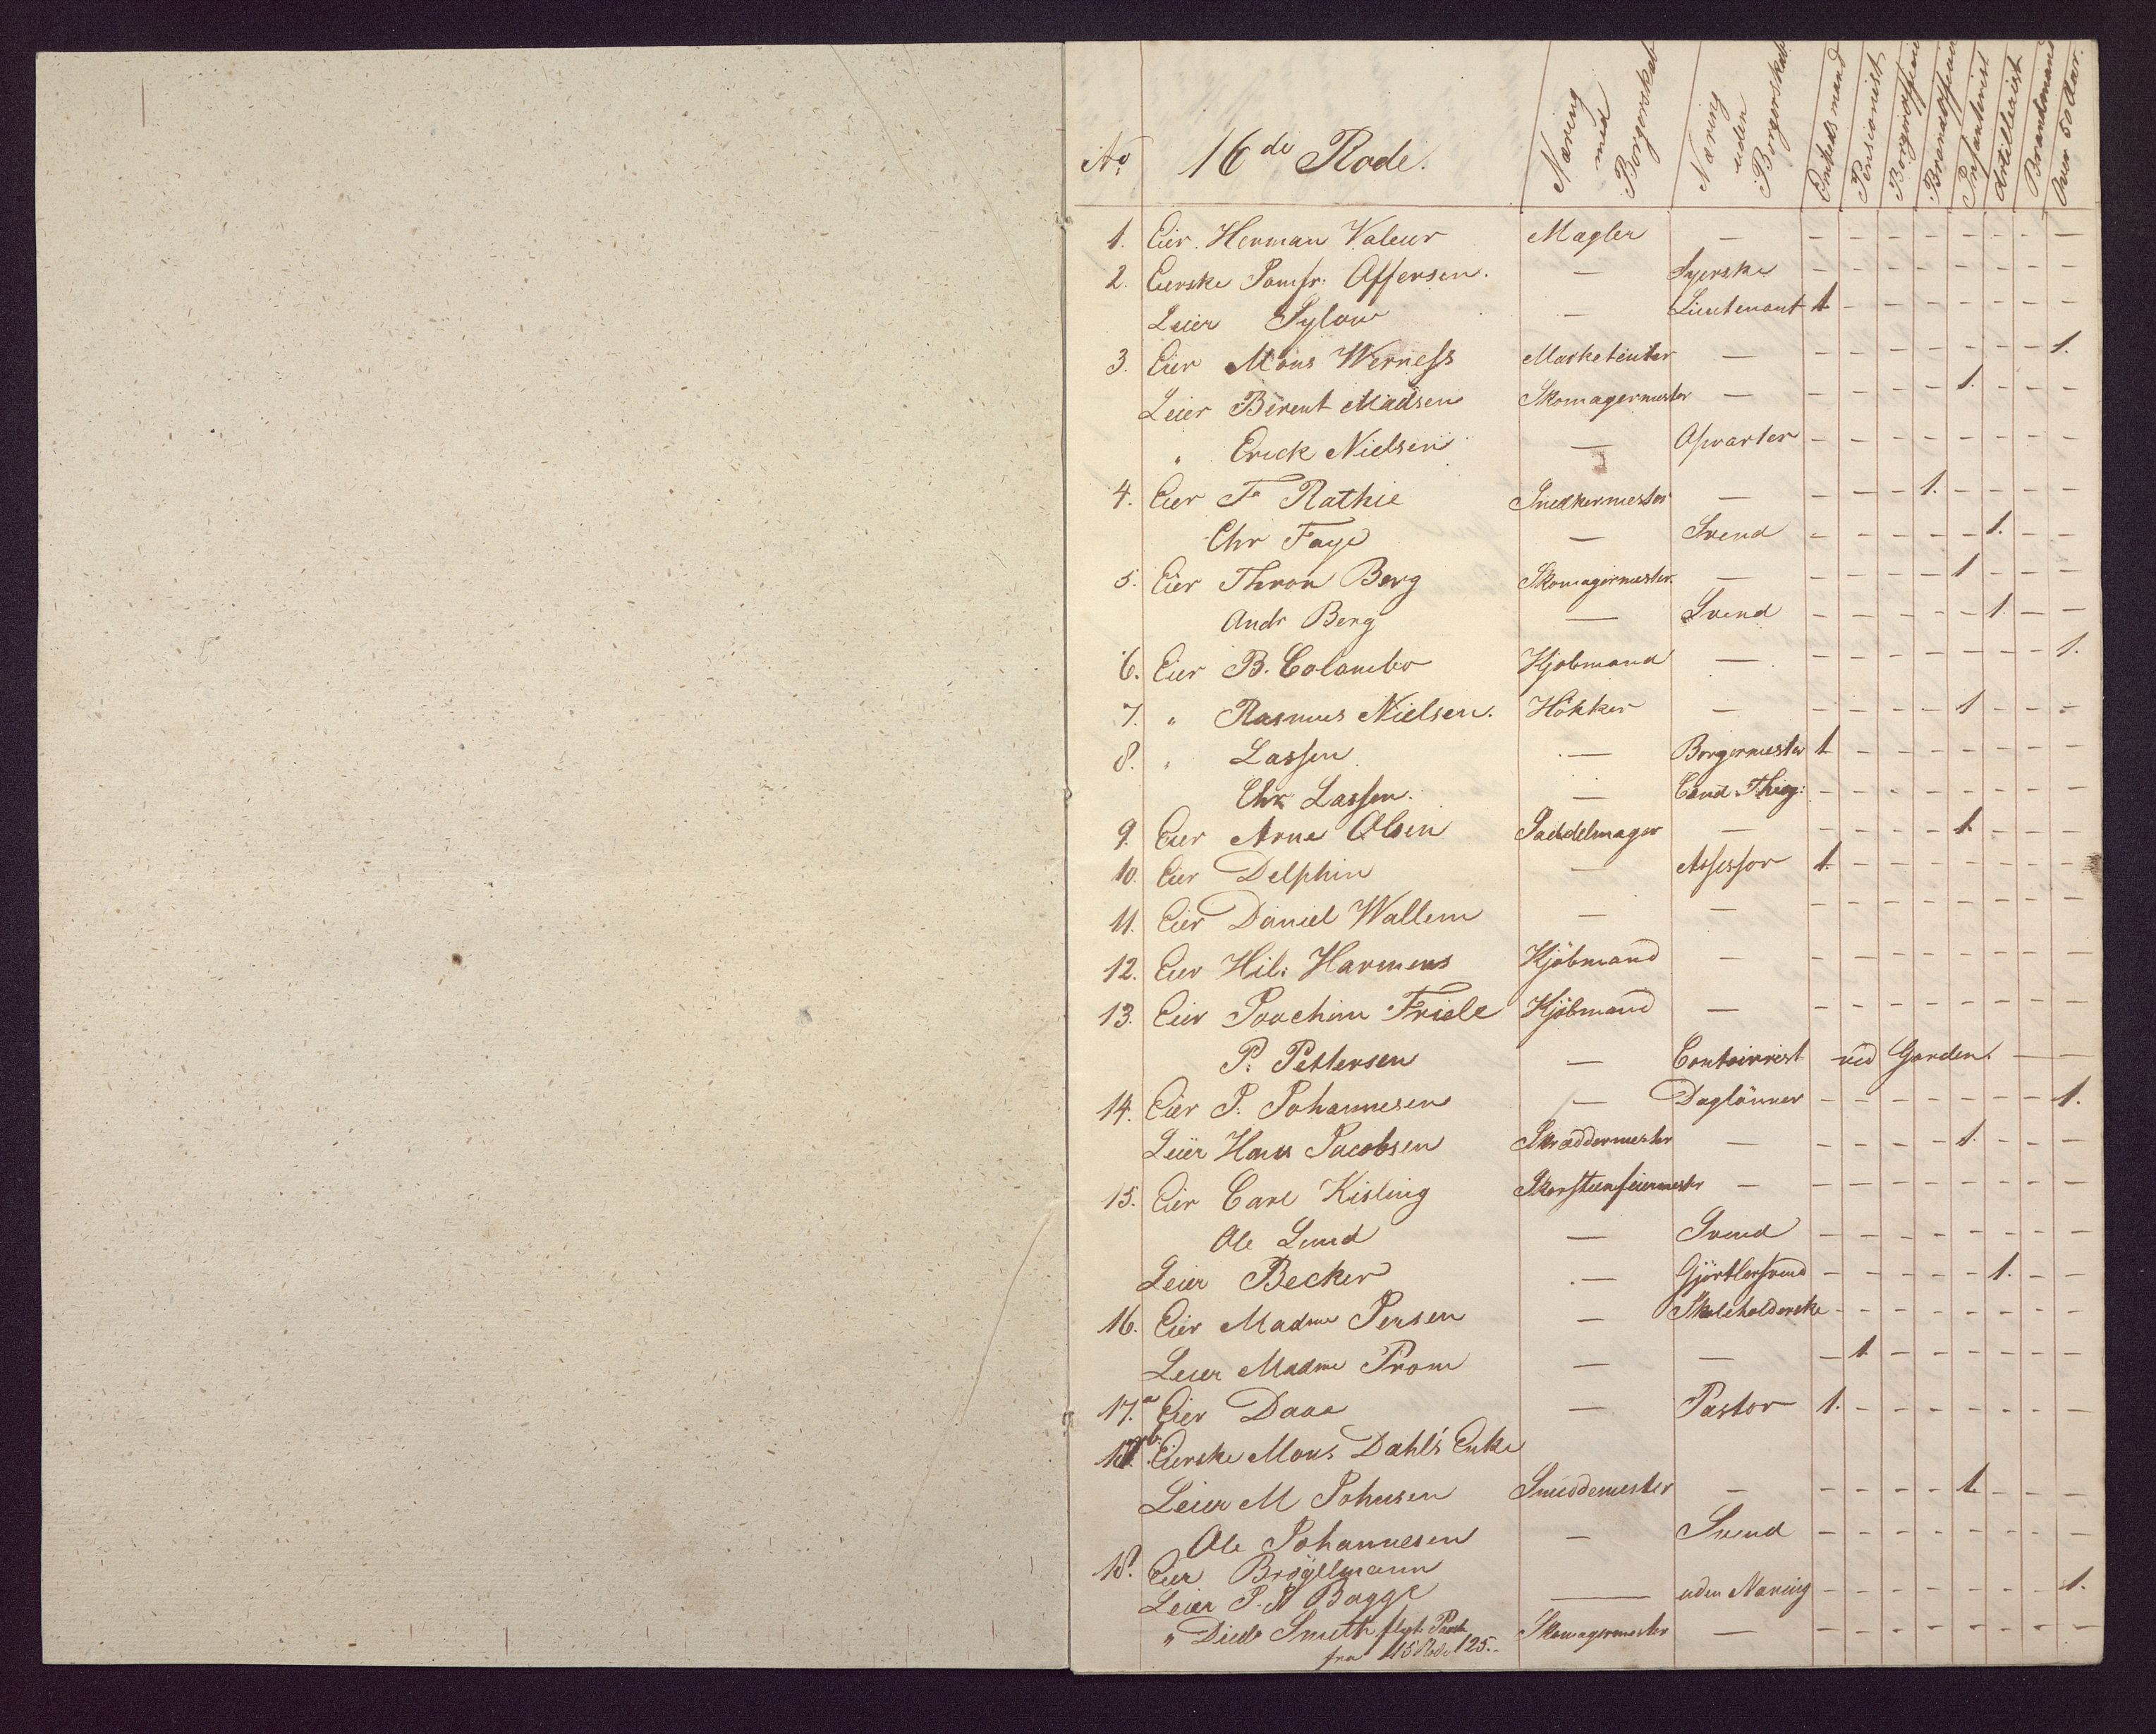 No 16de Rode. Næring med Borgerskab Næring uden Borgerskab Embedsmand Pensionist Borgerofficier Brandofficier Infanterist Artillerist Brandmand Over 50 Aar.
1. Eier Herman Valeur Mægler — — — — — — — — —
2. Eierske Jomfr. Offersen. — Syerske — — — — — — — —
Leier Sylow — Lieutenant 1 — — — — — — —
3. Eier Mons Werness Marketenter — — — — — — — — 1.
Leier Berent Madsen Skomagermester — — — — — 1. — — —
" Erick Nielsen — Opvarter — — — — — — — —
4. Eier F Rathie Snedkermester — — — — 1. — — — —
Chr Faye — Svend — — — — — 1. — —
5. Eier Thron Berg Skomagermester — — — — — 1 — — —
Andr Berg — Svend — — — — — 1. — —
6. Eier B. Colombo Kjøbmand — — — — — — — — 1.
7. " Rasmus Nielsen. Høkker — — — — — 1 — — —
8. " Lassen — Borgermester 1 — — — — — — —
Chr Lassen. — Cand. — — — — — — — —
9. Eier Arne Olsen Saddelmager — — — — — 1. — — —
10. Eier Delphin — Assessor 1. — — — — — — —
11. Eier Daniel Wallem — — — — — — — — — —
12. Eier Hil: Harmens Kjøbmand — — — — — — — — —
13. Eier Joachim Friele Kjøbmand — — — — — — — — —
P. Pettersen — Contoirist ved Garden. — —
14. Eier P. Johannesen — Daglønner — — — — — — — 1.
Leier Hans Jacobsen Skræddermester — — — — — 1. — — —
15. Eier Carl Kisling Skorsteenfeiermester — — — — — — — — —
Ole Lund — Svend — — — — — — — —
Leier Becker — Gjørtlersvend — — — — — 1. — —
16. Eier Madme Jensen — Skoleholderske — — — — — — — —
Leier Madme Prom — — — 1 — — — — — —
17.a Eier Daae — Pastor 1. — — — — — — —
17b. Eierske Mons Dahl's Enke
Leier M Johnsen Smeddemester — — — — — 1 — — —
Ole Johannesen — Svend — — — — — — — —
18. Eier Brøgelmann
Leier P. Bagge — uden Næring — — — — — — — 1.
" Died. Smith flyt. Skomagermester — — — — — — — — —
fra 15 Rode 125.—